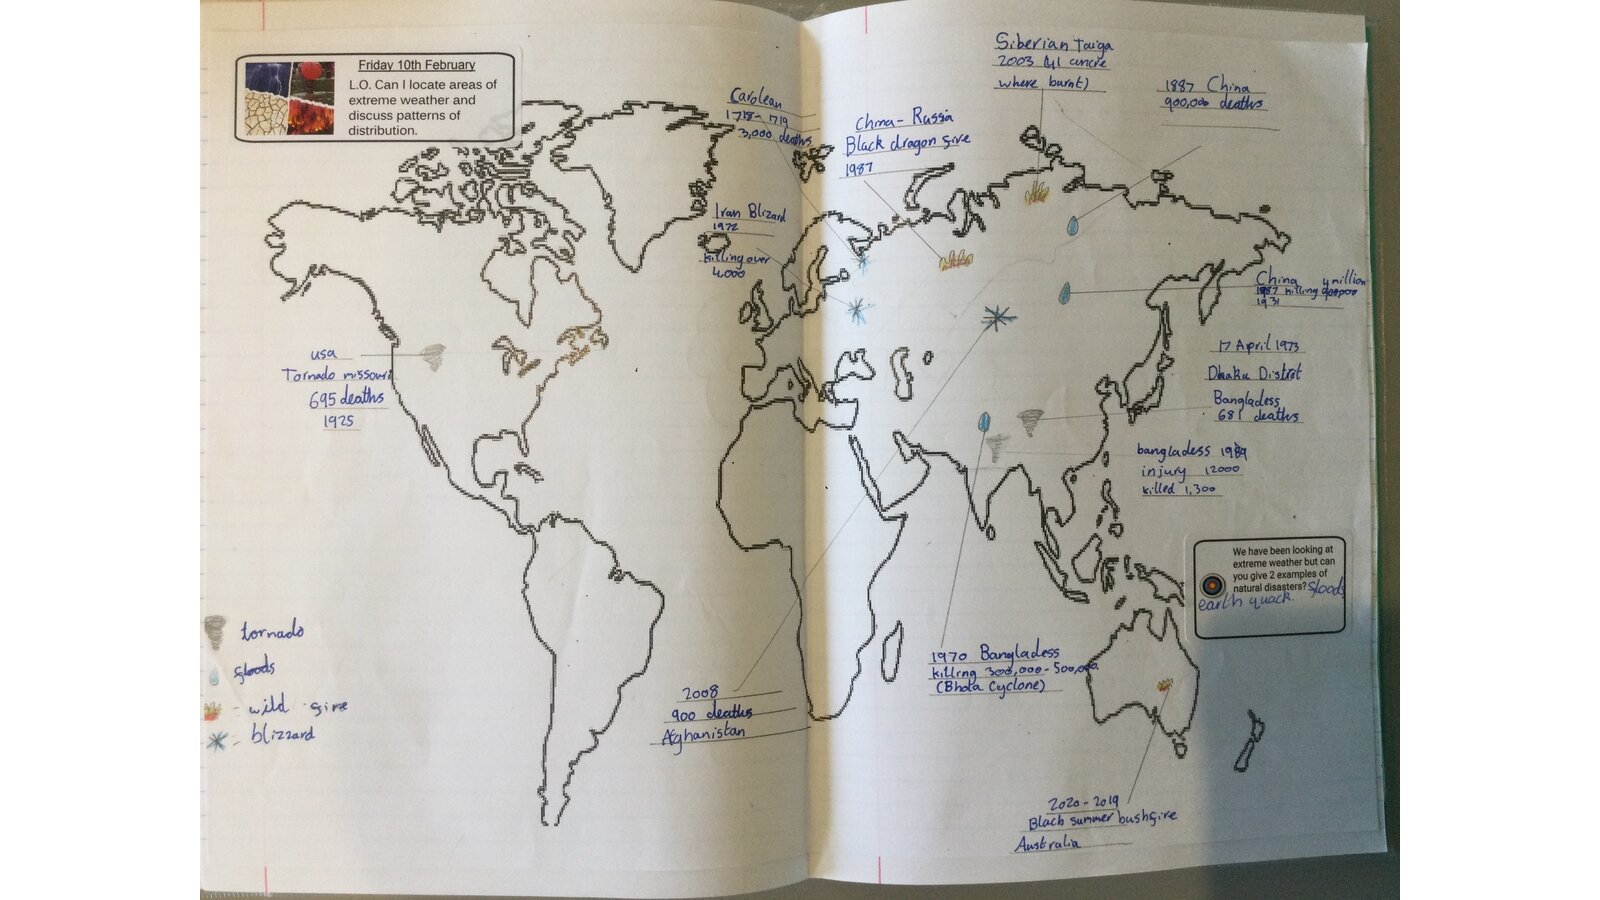 Friday 10th February
L.O. Can I locate areas of
extreme weather and
discuss patterns of
distribution.
Carolean
1718-1719
3,000 deaths
China-Russia
Black dragon fire
1987
Siberian Taiga
2003
where burnt)
1887 China
900,000 deaths
Iran Blizard
1972
killing over
4,000
China 4 million
1887 killing
1931
usa
Tornado missouri
695 deaths
1925
17 April 1973
Dhaka District
Bangladess
681 deaths
bangladess 1989
injury 12000
killed 1,300
We have been looking at
extreme weather but can
you give 2 examples of
natural disasters? floods
earth quack.
tornado
floods
- wild fire
- blizzard
1970 Bangladess
killing 300,000-500,000
(Bhola Cyclone)
2008
900 deaths
Afghanistan
2020-2019
Black summer bushfire
Australia